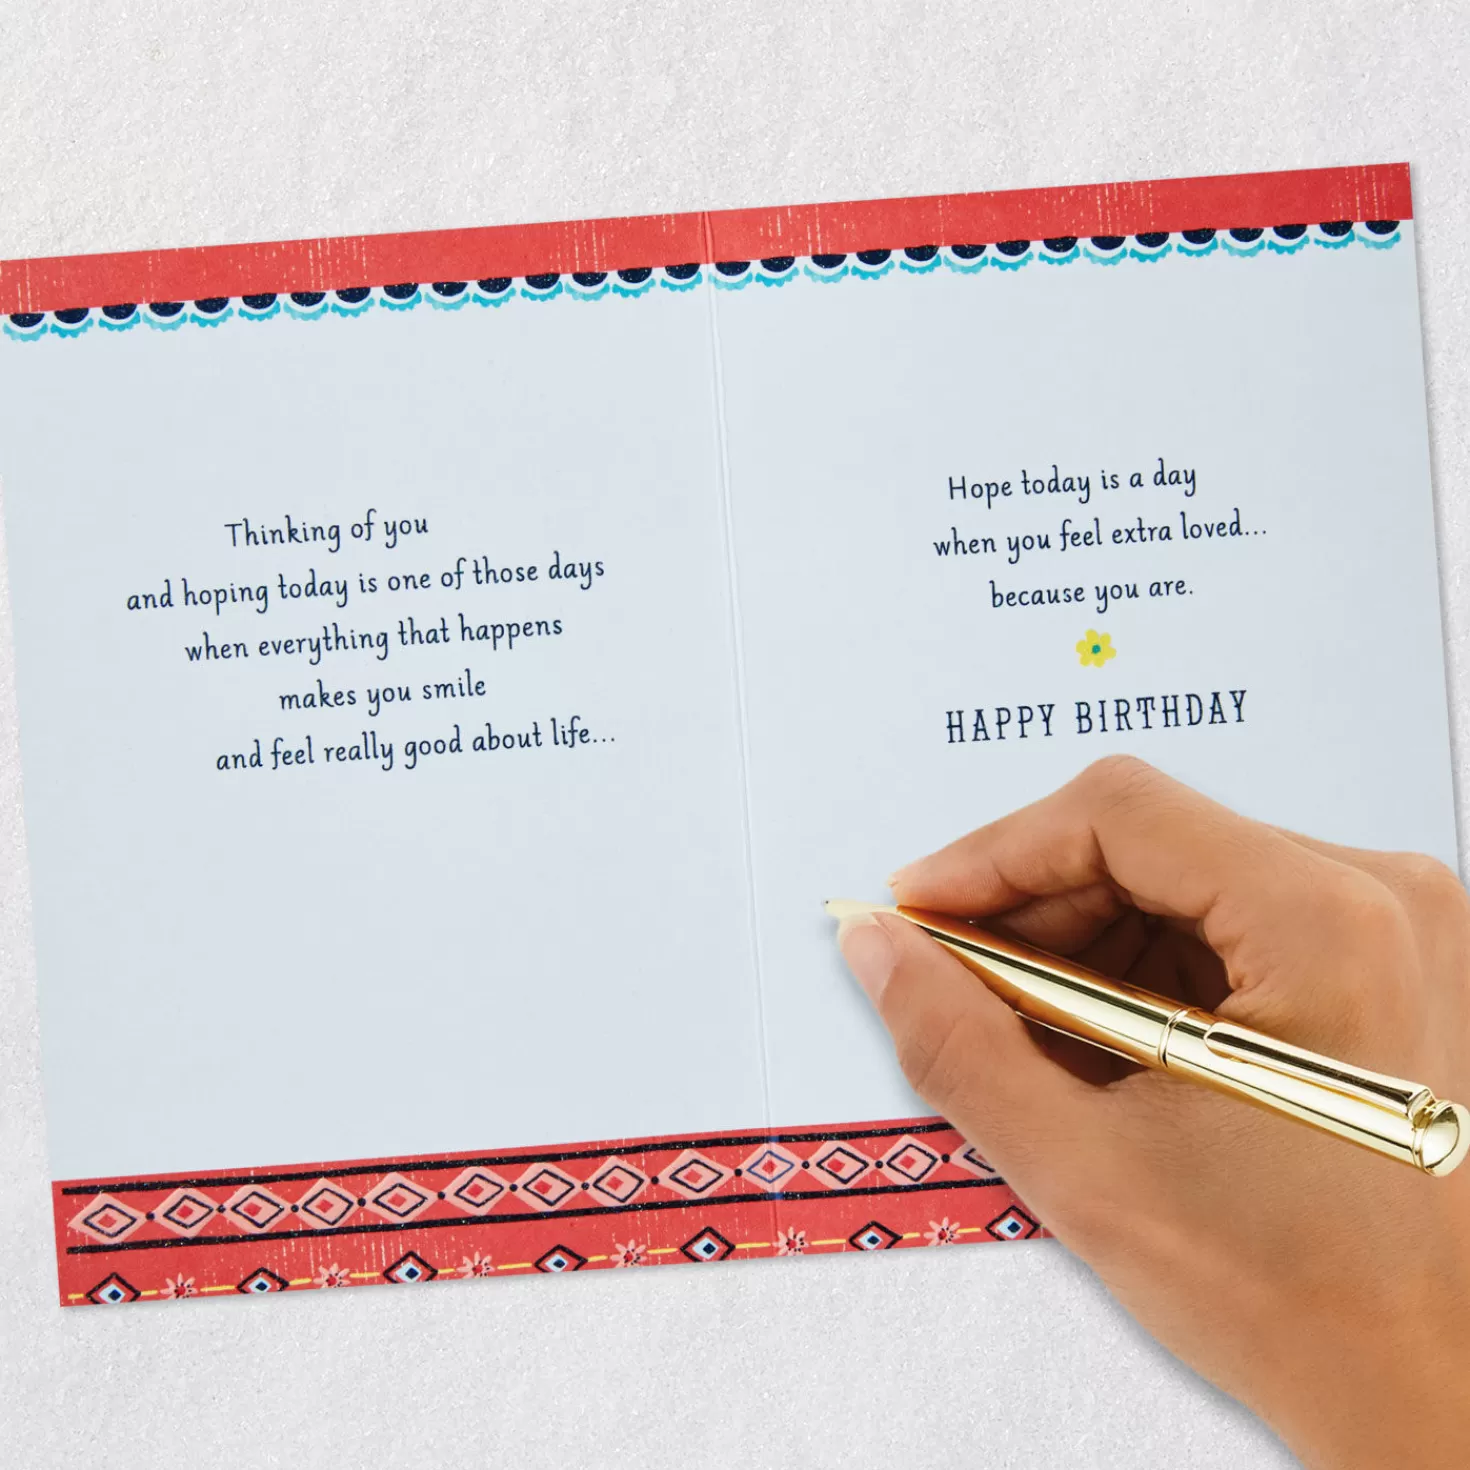 Thinking of you
and hoping today is one of those days
when everything that happens
makes you smile
and feel really good about life...
Hope today is a day
when you feel extra loved...
because you are.
HAPPY BIRTHDAY